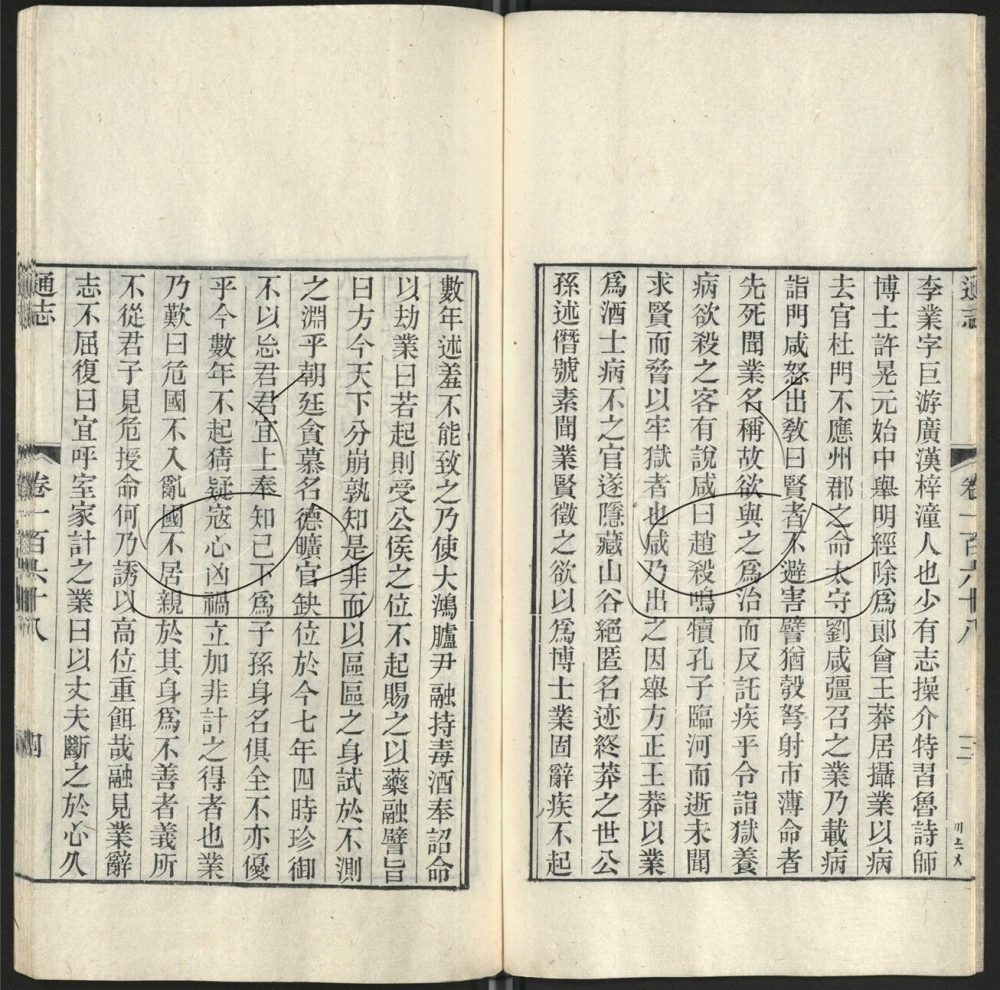 通志
卷一百六十八
三
李業字巨游廣漢梓潼人也少有志操介特習魯詩師
博士許晃元始中舉明經除爲郎會王莽居攝業以病
去官杜門不應州郡之命太守劉咸彊召之業乃載病
詣門咸怒出敎曰賢者不避害譬猶彀弩射市薄命者
先死聞業名稱故欲與之爲治而反託疾乎令詣獄養
病欲殺之客有說咸曰趙殺鳴犢孔子臨河而逝未聞
求賢而脅以牢獄者也咸乃出之因舉方正王莽以業
爲酒士病不之官遂隱藏山谷絕匿名迹終莽之世公
孫述僭號素聞業賢徵之欲以爲博士業固辭疾不起
數年述羞不能致之乃使大鴻臚尹融持毒酒奉詔命
以劫業曰若起則受公侯之位不起賜之以藥融譬旨
曰方今天下分崩孰知是非而以區區之身試於不測
之淵乎朝廷貪慕名德曠官缺位於今七年四時珍御
不以忩君君宜上奉知己下爲子孫身名俱全不亦優
乎今數年不起猜疑寇心凶禍立加非計之得者也業
乃歎曰危國不入亂國不居親於其身爲不善者義所
不從君子見危授命何乃誘以高位重餌哉融見業辭
志不屈復曰宜呼室家計之業曰以丈夫斷之於心久
通志
卷一百六十八